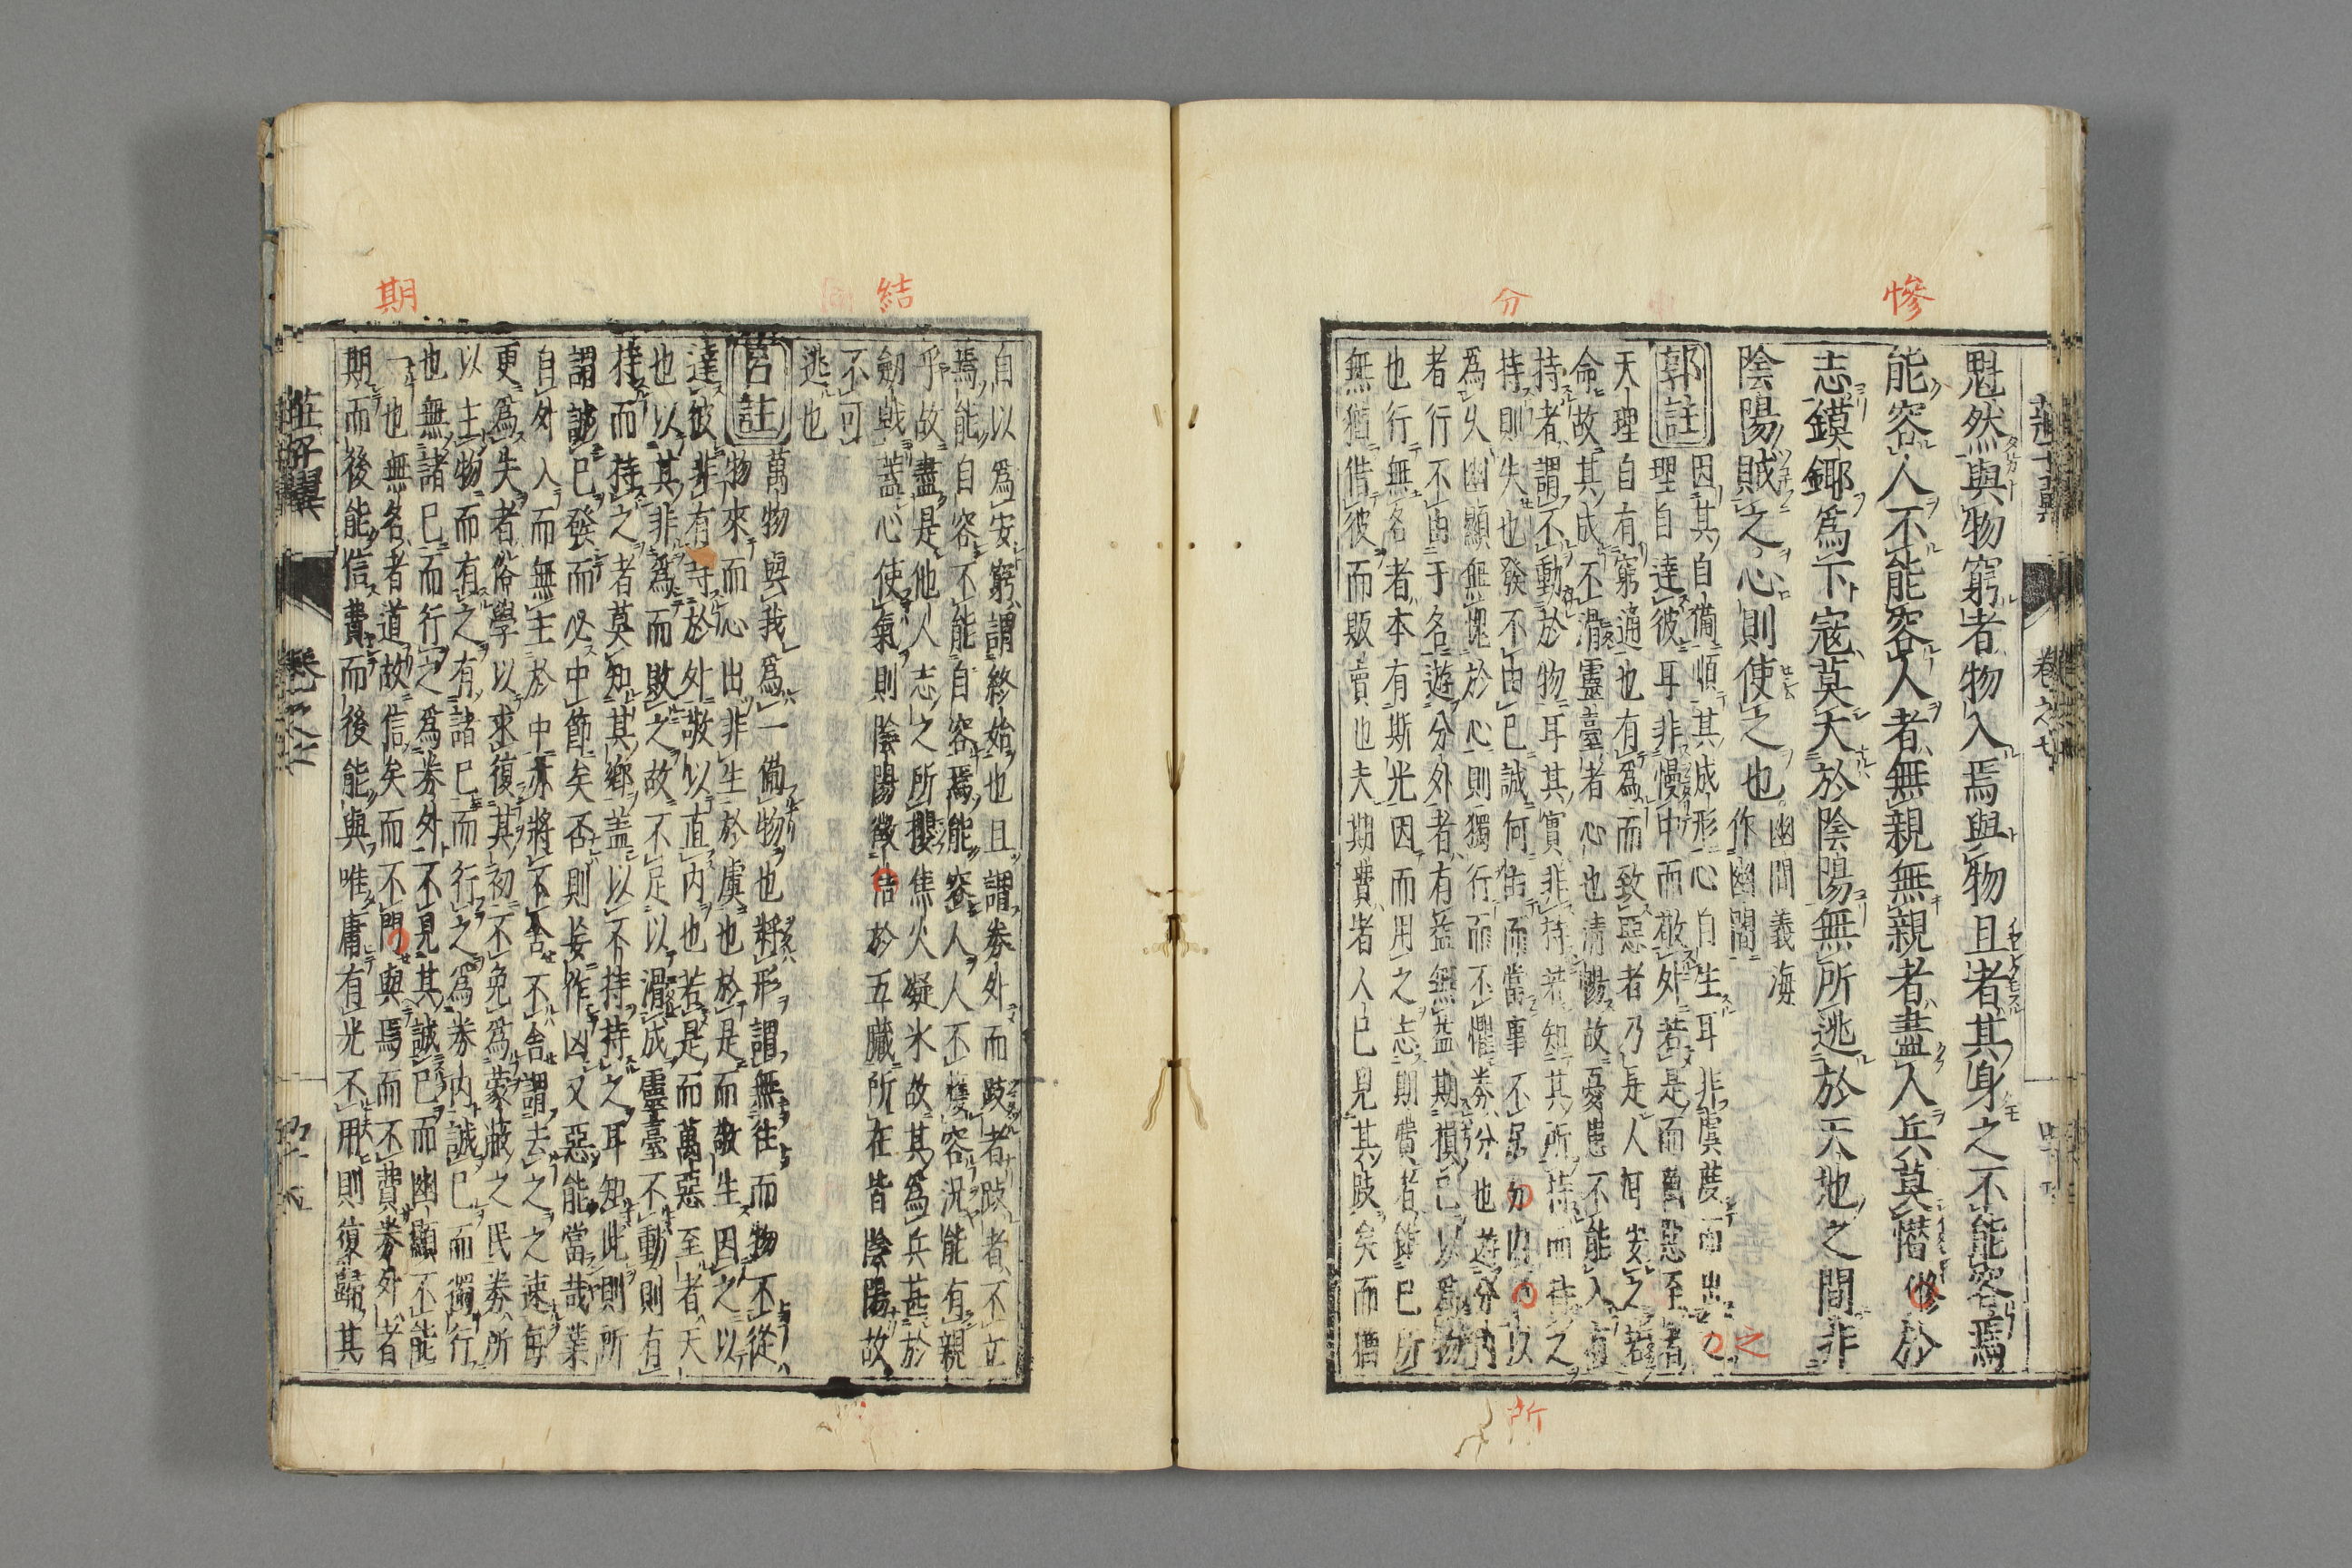 慘
魁然與物窮者物入焉與物且者其身之不能容焉
能容人不能容人者無親無親者盡人兵莫憯修於
志鏌鎁爲下寇莫大於陰陽無所逃於天地之間非
陰陽賊之心則使之也
幽間義海
作幽閽
郭註
因其自備順其成形心自生耳非虞度而出之
理自達彼耳非慢中而敬外若是而萬惡至者
天理自有窮通也有爲而致惡者乃是人何安之若
命故其成不滑靈臺者心也清暢故憂患不能入有
持者謂不動於物耳其實非持若知其所持而持之
持則失也發不由己誠何由而當事不居勿內以
爲久幽顯無愧於心則獨行而不懼券分也遊分內
者行不由于名遊分外者有益無益期損己以爲物
也行無名者本有斯光因而用之志期費者雖己所
無猶借彼而販賣也夫期費者人已見其跂矣而猶
分
所
之
莊子翼
卷之七
結
自以爲安窮謂終始也且謂券外而跂者跂者不立
焉能自容不能自容焉能容人人不獲容況能有親
乎故盡是他人志之所攖焦火凝氷故其爲兵甚於
劒戟蓋心使氣則陰陽徵佶於五臟所在皆陰陽故
不可
逃也
呂註
萬物與我爲一備物也將形謂無徃而物不從
物來而心出非生於虞也於是而敬生因之以
達彼非有待於外敬以直內也若是而萬惡至者天
也以其非爲而敗之故不足以滑成靈臺不動則有
持而持之者莫知其鄉蓋以不持持之耳知此則所
謂誠己發而必中節矣否則妄作凶又惡能當哉業
自外入而無主於中亦將不舍不舍謂去之之速每
更爲失者俗學以求復其初不免爲蒙蔽之民券所
以主物而有之有諸己而行之爲券內誠己而獨行
也無諸己而行之爲券外不見其誠己而幽顯不能
一也無名者道故信矣而不門與焉而不費券外者
期而後能信費而後能與唯庸有光不用則復歸其
期
莊子翼
卷之六